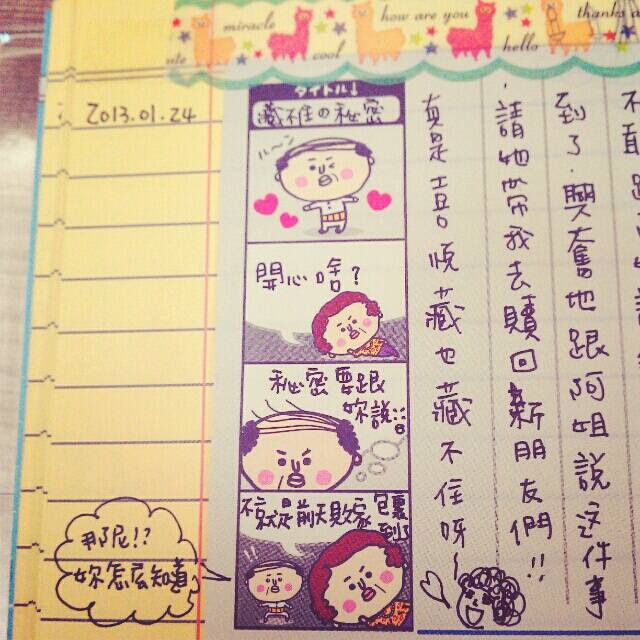 miracle
how are you
thanks a
cool
hello
2013.01.24
タイトル↓
藏不住の秘密
ル～ン
開心啥?
秘密要跟
妳說
不就是前天敗家包裹
到了
那尼!?
妳怎么知道
!!
到了.興奮地跟阿姐說这件事
請她帶我去贖回新朋友們!!
真是喜悅藏也藏不住呀~